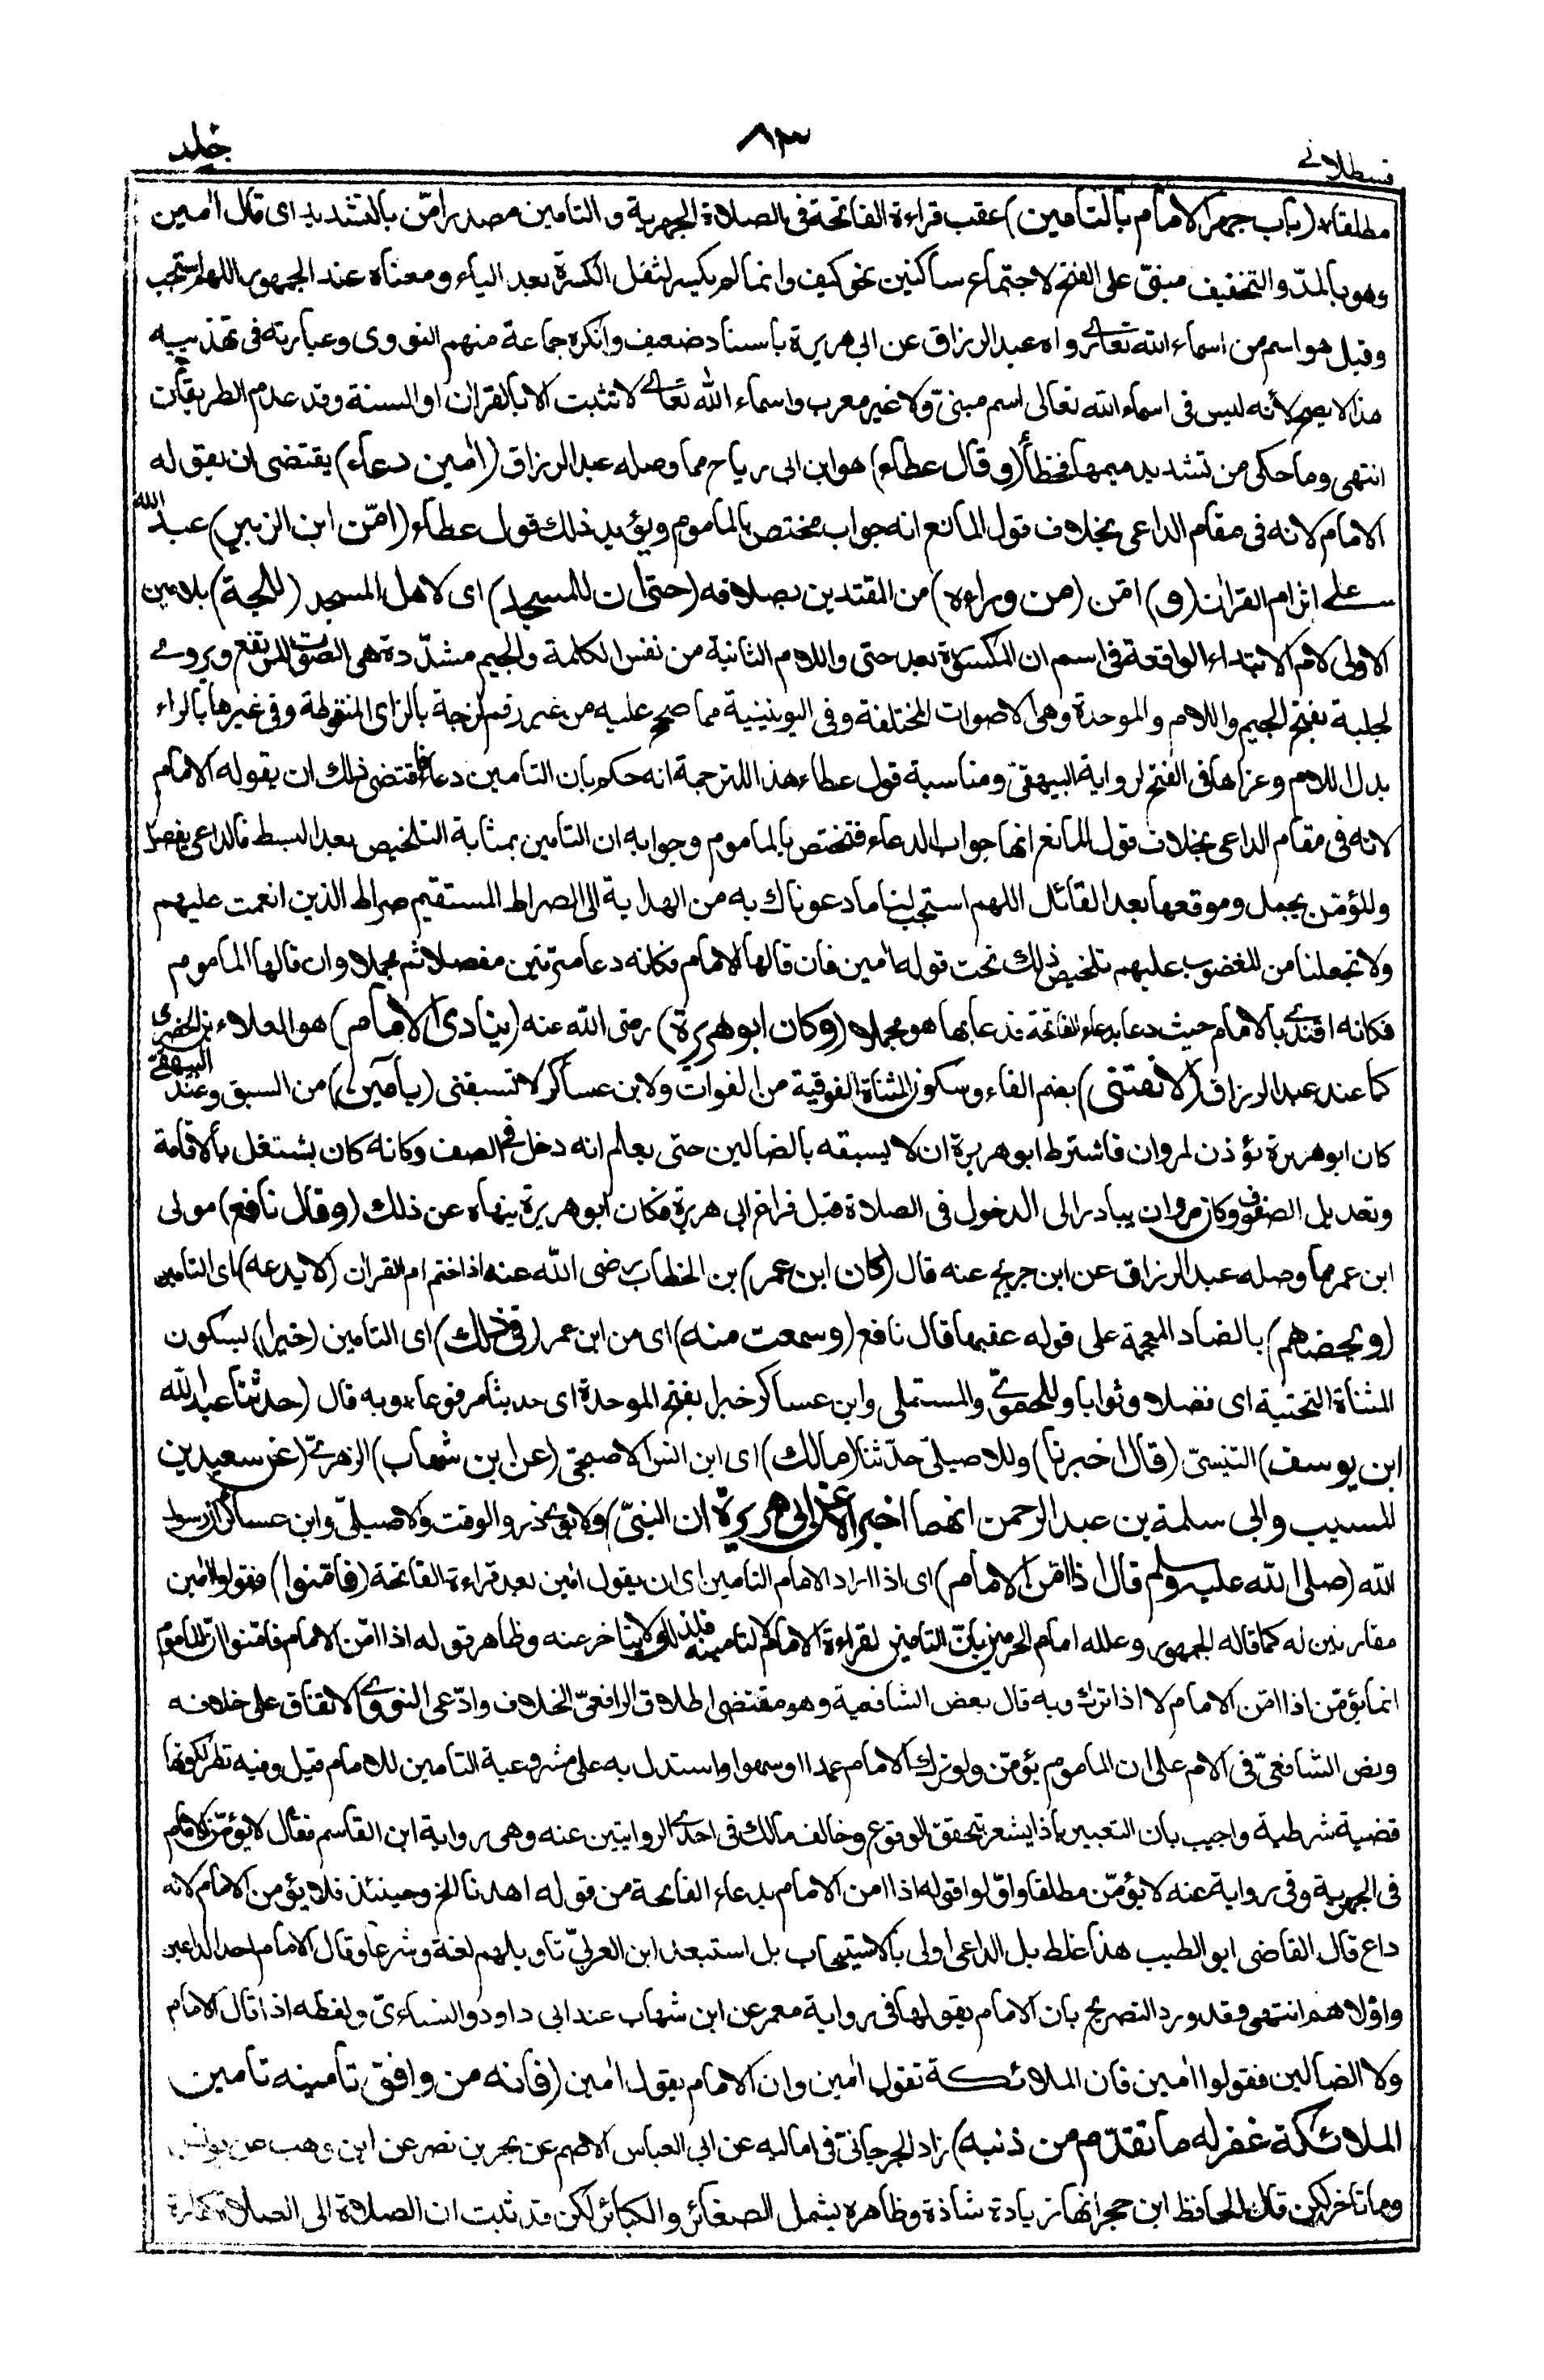 قسطلانے ٨٣ جلد
مطلقاه (باب جهر الامام بالتامين) عقب قراءة الفاتحة فى الصلاة الجهرية والتامين مصدر امّن بالتشديد اى قال اٰمين
وهو بالمدّ والتخفيف مبنىّ على الفتح لاجتماع ساكنين نحو كيف وانما لم يكسر لثقل الكسرة بعد الياء ومعناه عند الجمهور اللهم استجب
وقيل هو اسم من اسماء الله تعالے رواه عبد الرزاق عن ابى هريرة باسناد ضعيف وانكره جماعة منهم النووى وعبارته فى تهذيبه
هذا لا يصح لأنه ليس فى اسماء الله تعالى اسم مبنىّ ولا غير معرب واسماء الله تعالے لا تثبت الا بالقراٰن او السنة وقد عدم الطريقان
انتهى وما حكى من تشديد ميمها فخطأ (وقال عطاء) هو ابن ابى رباح مما وصله عبد الرزاق (اٰمين دعاء) يقتضى ان يقوله
الامام لانه فى مقام الداعى بخلاف قول المانع انه جواب مختص بالماموم ويؤيد ذلك قول عطاء (امّن ابن الزبير) عبد الله
على اثر ام القراٰن (و) امّن (من وراءه) من المقتدين بصلاته (حتى ان للمسجد) اى لاهل المسجد (للجة) بلامين
الاولى لام الابتداء الواقعة فى اسم ان المكسورة بعد حتى واللام الثانية من نفس الكلمة والجيم مشدّدة هى الصوت المرتفع ويروے
لجلبة بفتح الجيم واللام والموحدة وهى الاصوات المختلفة وفى اليونينية مما صحح عليه من غير رقم لزجة بالزاى المنقوطة وفى غيرها بالراء
بدل اللام وعزاها فى الفتح لرواية البيهقىّ ومناسبة قول عطاء هذا للترجمة انه حكم بان التامين دعاء فاقتضى ذلك ان يقوله الامام
لانه فى مقام الداعى بخلاف قول المانع انها جواب الدعاء فتختص بالماموم وجوابه ان التامين بمثابة التلخيص بعد البسط فالداعى يفصل
والمؤمّن يجمل وموقعها بعد القائل اللهم استجب لنا ما دعوناك به من الهداية الى الصراط المستقيم صراط الذين انعمت عليهم
ولا تجعلنا من المغضوب عليهم تلخيص ذلك تحت قوله اٰمين فان قالها الامام فكانه دعا مرّتين مفصلا ثم مجملا وان قالها الماموم
فكانه اقتدے بالامام حيث دعا بدعاء الفاتحة فدعا بها هو مجملا (وكان ابو هريرة) رضى الله عنه (ينادى الامام) هو العلاء بن الحضرمى
كما عند عبد الرزاق (لا تفتنى) بضم الفاء وسكون المثناة الفوقية من الفوات ولابن عساكر لا تسبقنى (باٰمين) من السبق وعند البيهقىّ
كان ابو هريرة يؤذن لمروان فاشترط ابو هريرة ان لا يسبقه بالضالين حتى يعلم انه دخل فى الصف وكانه كان يشتغل بالاقامة
وتعديل الصفوف وكان مروان يبادر الى الدخول فى الصلاة قبل فراغ ابى هريرة فكان ابو هريرة ينهاه عن ذلك (وقال نافع) مولى
ابن عمر مما وصله عبد الرزاق عن ابن جريج عنه قال (كان ابن عمر) بن الخطاب رضى الله عنه اذا ختم ام القراٰن (لا يدعه) اى التامين
(ويحضهم) بالضاد المعجمة على قوله عقبها قال نافع (وسمعت منه) اى من ابن عمر (فى ذلك) اى التامين (خيرا) بسكون
المثناة التحتية اى فضلا وثوابا وللحموىّ والمستملى وابن عساكر خبرا بفتح الموحدة اى حديثا مرفوعا وبه قال (حدثنا عبد الله
ابن يوسف) التنيسىّ (قال اخبرنا) وللاصيلىّ حدّثنا (مالك) اى ابن انس الاصبحىّ (عن ابن شهاب) الزهرىّ (عن سعيد بن
المسيب وابى سلمة بن عبد الرحمن انهما اخبراه عن ابى هريرة ان النبىّ) ولابوى ذر والوقت والاصيلىّ وابن عساكر ان رسول
الله (صلى الله عليه وسلم قال اذا امّن الامام) اى اذا اراد الامام التامين اى ان يقول اٰمين بعد قراءة الفاتحة (فامّنوا) فقولوا اٰمين
مقارنين له كما قاله الجمهور وعلله امام الحرمين بان التامين لقراءة الامام لا لتامينه فلذلك لا يتاخر عنه وظاهر قوله اذا امّن الامام فامّنوا انّ الماموم
انما يؤمّن اذا امّن الامام لا اذا ترك وبه قال بعض الشافعية وهو مقتضى اطلاق الرافعىّ الخلاف وادّعى النووىّ الاتفاق على خلافه
ونص الشافعىّ فى الام على ان الماموم يؤمّن ولو ترك الامام عمدا او سهوا واستدل به على مشروعية التامين للامام قيل وفيه نظر لكونها
قضية شرطية واجيب بان التعبير باذا يشعر بتحقق الوقوع وخالف مالك فى احدى الروايتين عنه وهى رواية ابن القاسم فقال لا يؤمّن الامام
فى الجهرية وفى رواية عنه لا يؤمّن مطلقا واوّلوا قوله اذا امن الامام بدعاء الفاتحة من قوله اهدنا الخ وحينئذ فلا يؤمن الامام لانه
داع قال القاضى ابو الطيب هذا غلط بل الداعى اولى بالاستيجاب بل استبعد ابن العربىّ تاويلهم لغة وشرعا وقال الامام احد الداعين
واوّلاهم انتهى وقد ورد التصريح بان الامام يقولها فى رواية معمر عن ابن شهاب عند ابى داود والنساءىّ ولفظه اذا قال الامام
ولا الضالين فقولوا اٰمين فان الملائكة تقول اٰمين وان الامام يقول اٰمين (فانه من وافق تامينه تامين
الملائكة غفر له ما تقدّم من ذنبه) زاد الجرجانىّ فى اماليه عن ابى العباس الاصم عن بحر بن نصر عن ابن وهب عن يونس
وما تاخر لكن قال الحافظ ابن حجر انها زيادة شاذة وظاهره يشمل الصغائر والكبائر لكن قد ثبت ان الصلاة الى الصلاة كفارة